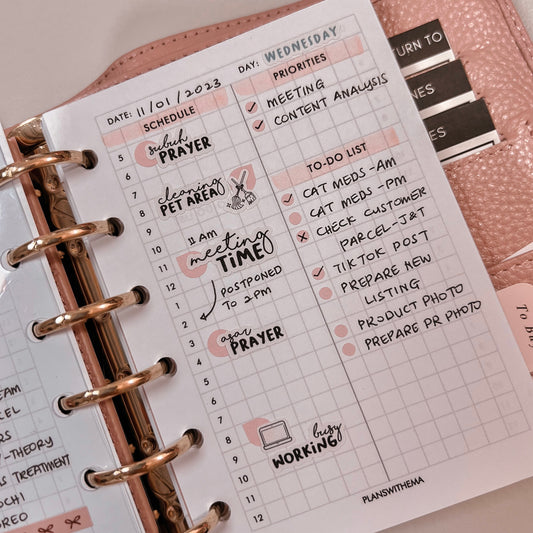 DATE: 11/01/2023
DAY: WEDNESDAY
SCHEDULE
5
6
7
8
9
10
11
12
1
2
3
4
5
6
7
8
9
10
11
12
subuh
PRAYER
cleaning
PET AREA
11 AM
meeting
TIME
POSTPONED
TO 2 PM
asar
PRAYER
busy
WORKING
PRIORITIES
MEETING
CONTENT ANALYSIS
TO-DO LIST
CAT MEDS -AM
CAT MEDS -PM
CHECK CUSTOMER
PARCEL-J&T
TIKTOK POST
PREPARE NEW
LISTING
PRODUCT PHOTO
PREPARE PR PHOTO
PLANSWITHEMA
TO
To